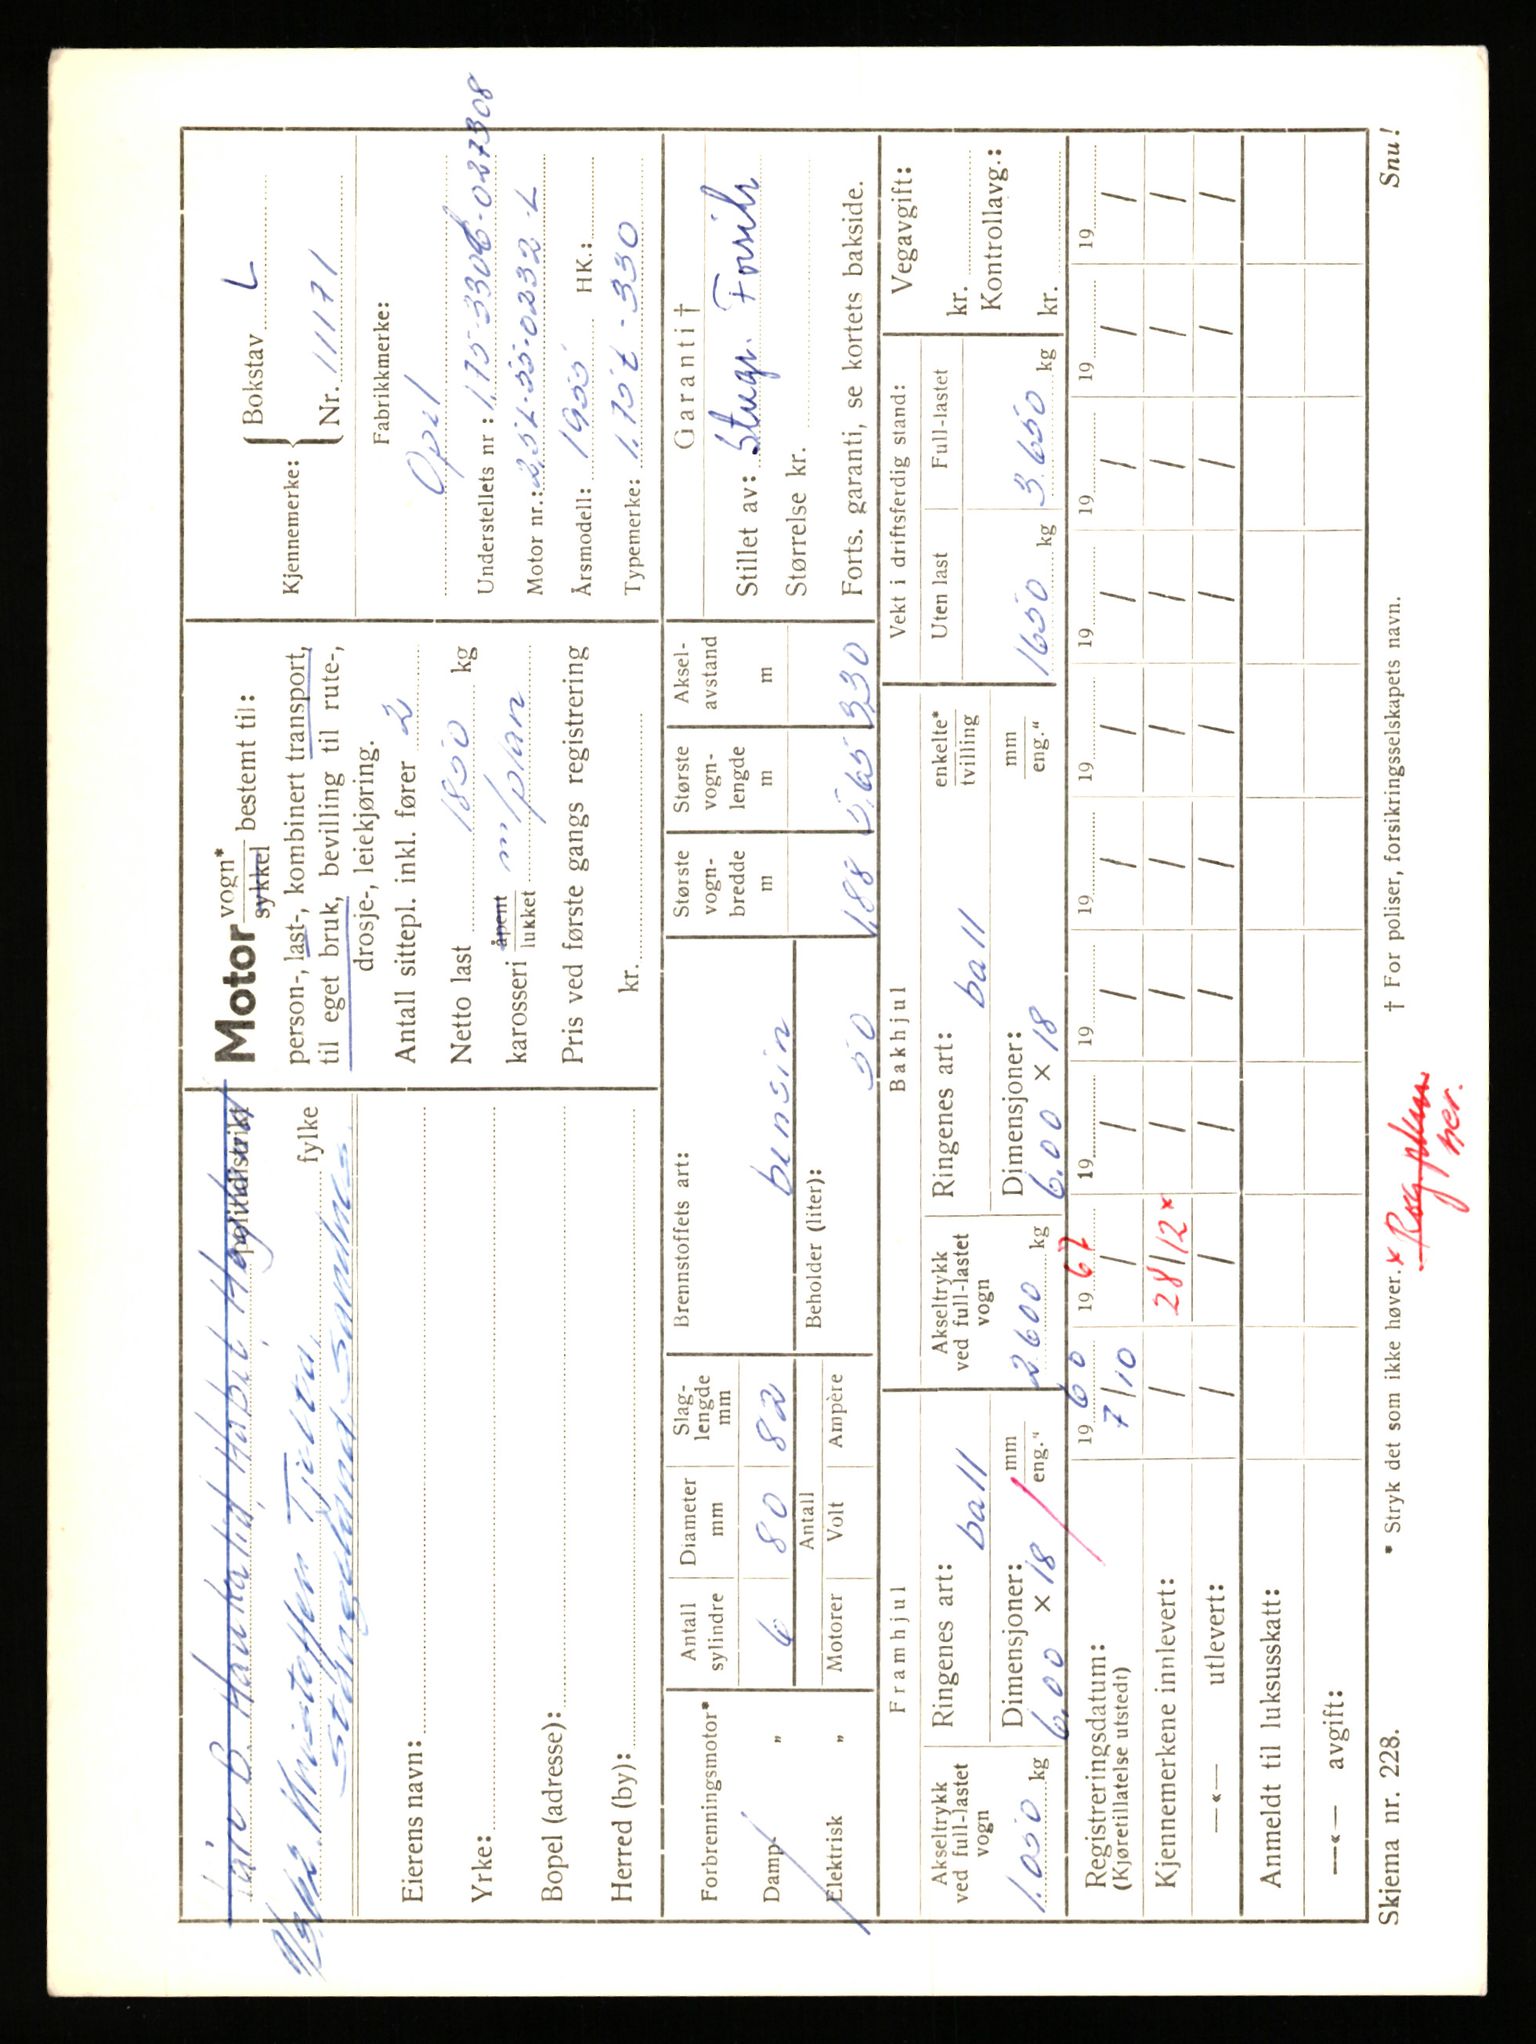 politidistrikt
fylke
Eierens navn:
Yrke:
Bopel (adresse):
Herred (by):
Motor vogn*
sykkel bestemt til:
person-, last-, kombinert transport,
til eget bruk, bevilling til rute-,
drosje-, leiekjøring.
Antall sittepl. inkl. fører 2
Netto last 1850 kg
karosseri åpent
lukket m/plan
Pris ved første gangs registrering
kr.
Kjennemerke: { Bokstav L
Nr. 11171
Fabrikkmerke:
Opel
Understellets nr:
Motor nr.:
Årsmodell: 1955 HK.:
Typemerke:
Forbrenningsmotor*
Damp „
Elektrisk „
Antall sylindre 6
Diameter mm 80
Slag-lengde mm 82
Antall
Motorer Volt Ampère
Brennstoffets art:
bensin
Beholder (liter):
50
Største vogn-bredde m 1,88
Største vogn-lengde m 5,65
Aksel-avstand m 3,30
Garanti †
Stillet av:
Størrelse kr.
Forts. garanti, se kortets bakside.
Framhjul
Akseltrykk ved full-lastet vogn
1.050 kg
Ringenes art:
ball
Dimensjoner: mm
eng."
6.00 × 18
Bakhjul
Akseltrykk ved full-lastet vogn
2600 kg
Ringenes art: enkelte*
tvilling
ball
Dimensjoner: mm
eng."
6.00 × 18
Vekt i driftsferdig stand:
Uten last Full-lastet
1650 kg 3650 kg
Vegavgift:
kr.
Kontrollavg.:
kr.
Registreringsdatum: 1960 1967 19 19 19 19 19 19 19 19
(Kjøretillatelse utstedt) 7/10 / / / / / / / / /
Kjennemerkene innlevert: / 28/12* / / / / / / / /
—«— utlevert: / / / / / / / / / /
Anmeldt til luksusskatt:
—«— avgift:
Skjema nr. 228.
* Stryk det som ikke høver.
† For poliser, forsikringsselskapets navn.
Snu!